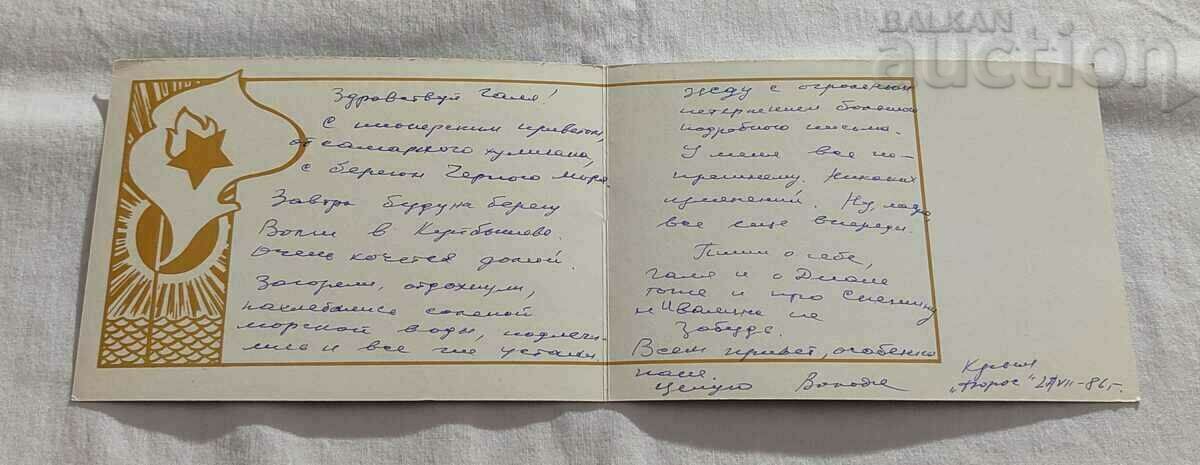 BALKAN
auction
Здравствуй Галя!
С пионерским приветом,
от самарского хулигана,
с берегов Черного моря.
Завтра буду на берегу
Волги в Куйбышеве.
Очень хочется домой.
Загорели, отдохнули,
нахлебались соленой
морской воды, подлечи-
лись и все же устали.
Жду с огромным
нетерпением большого
подробного письма.
У меня все по-
прежнему. Никаких
изменений. Ну, ладно,
все еще впереди.
Пиши о себе,
Галя и о Диане
тоже и про
и не
забудь.
Всем привет, особенно
целую Володя
Крым
"Форос" VII-86г.